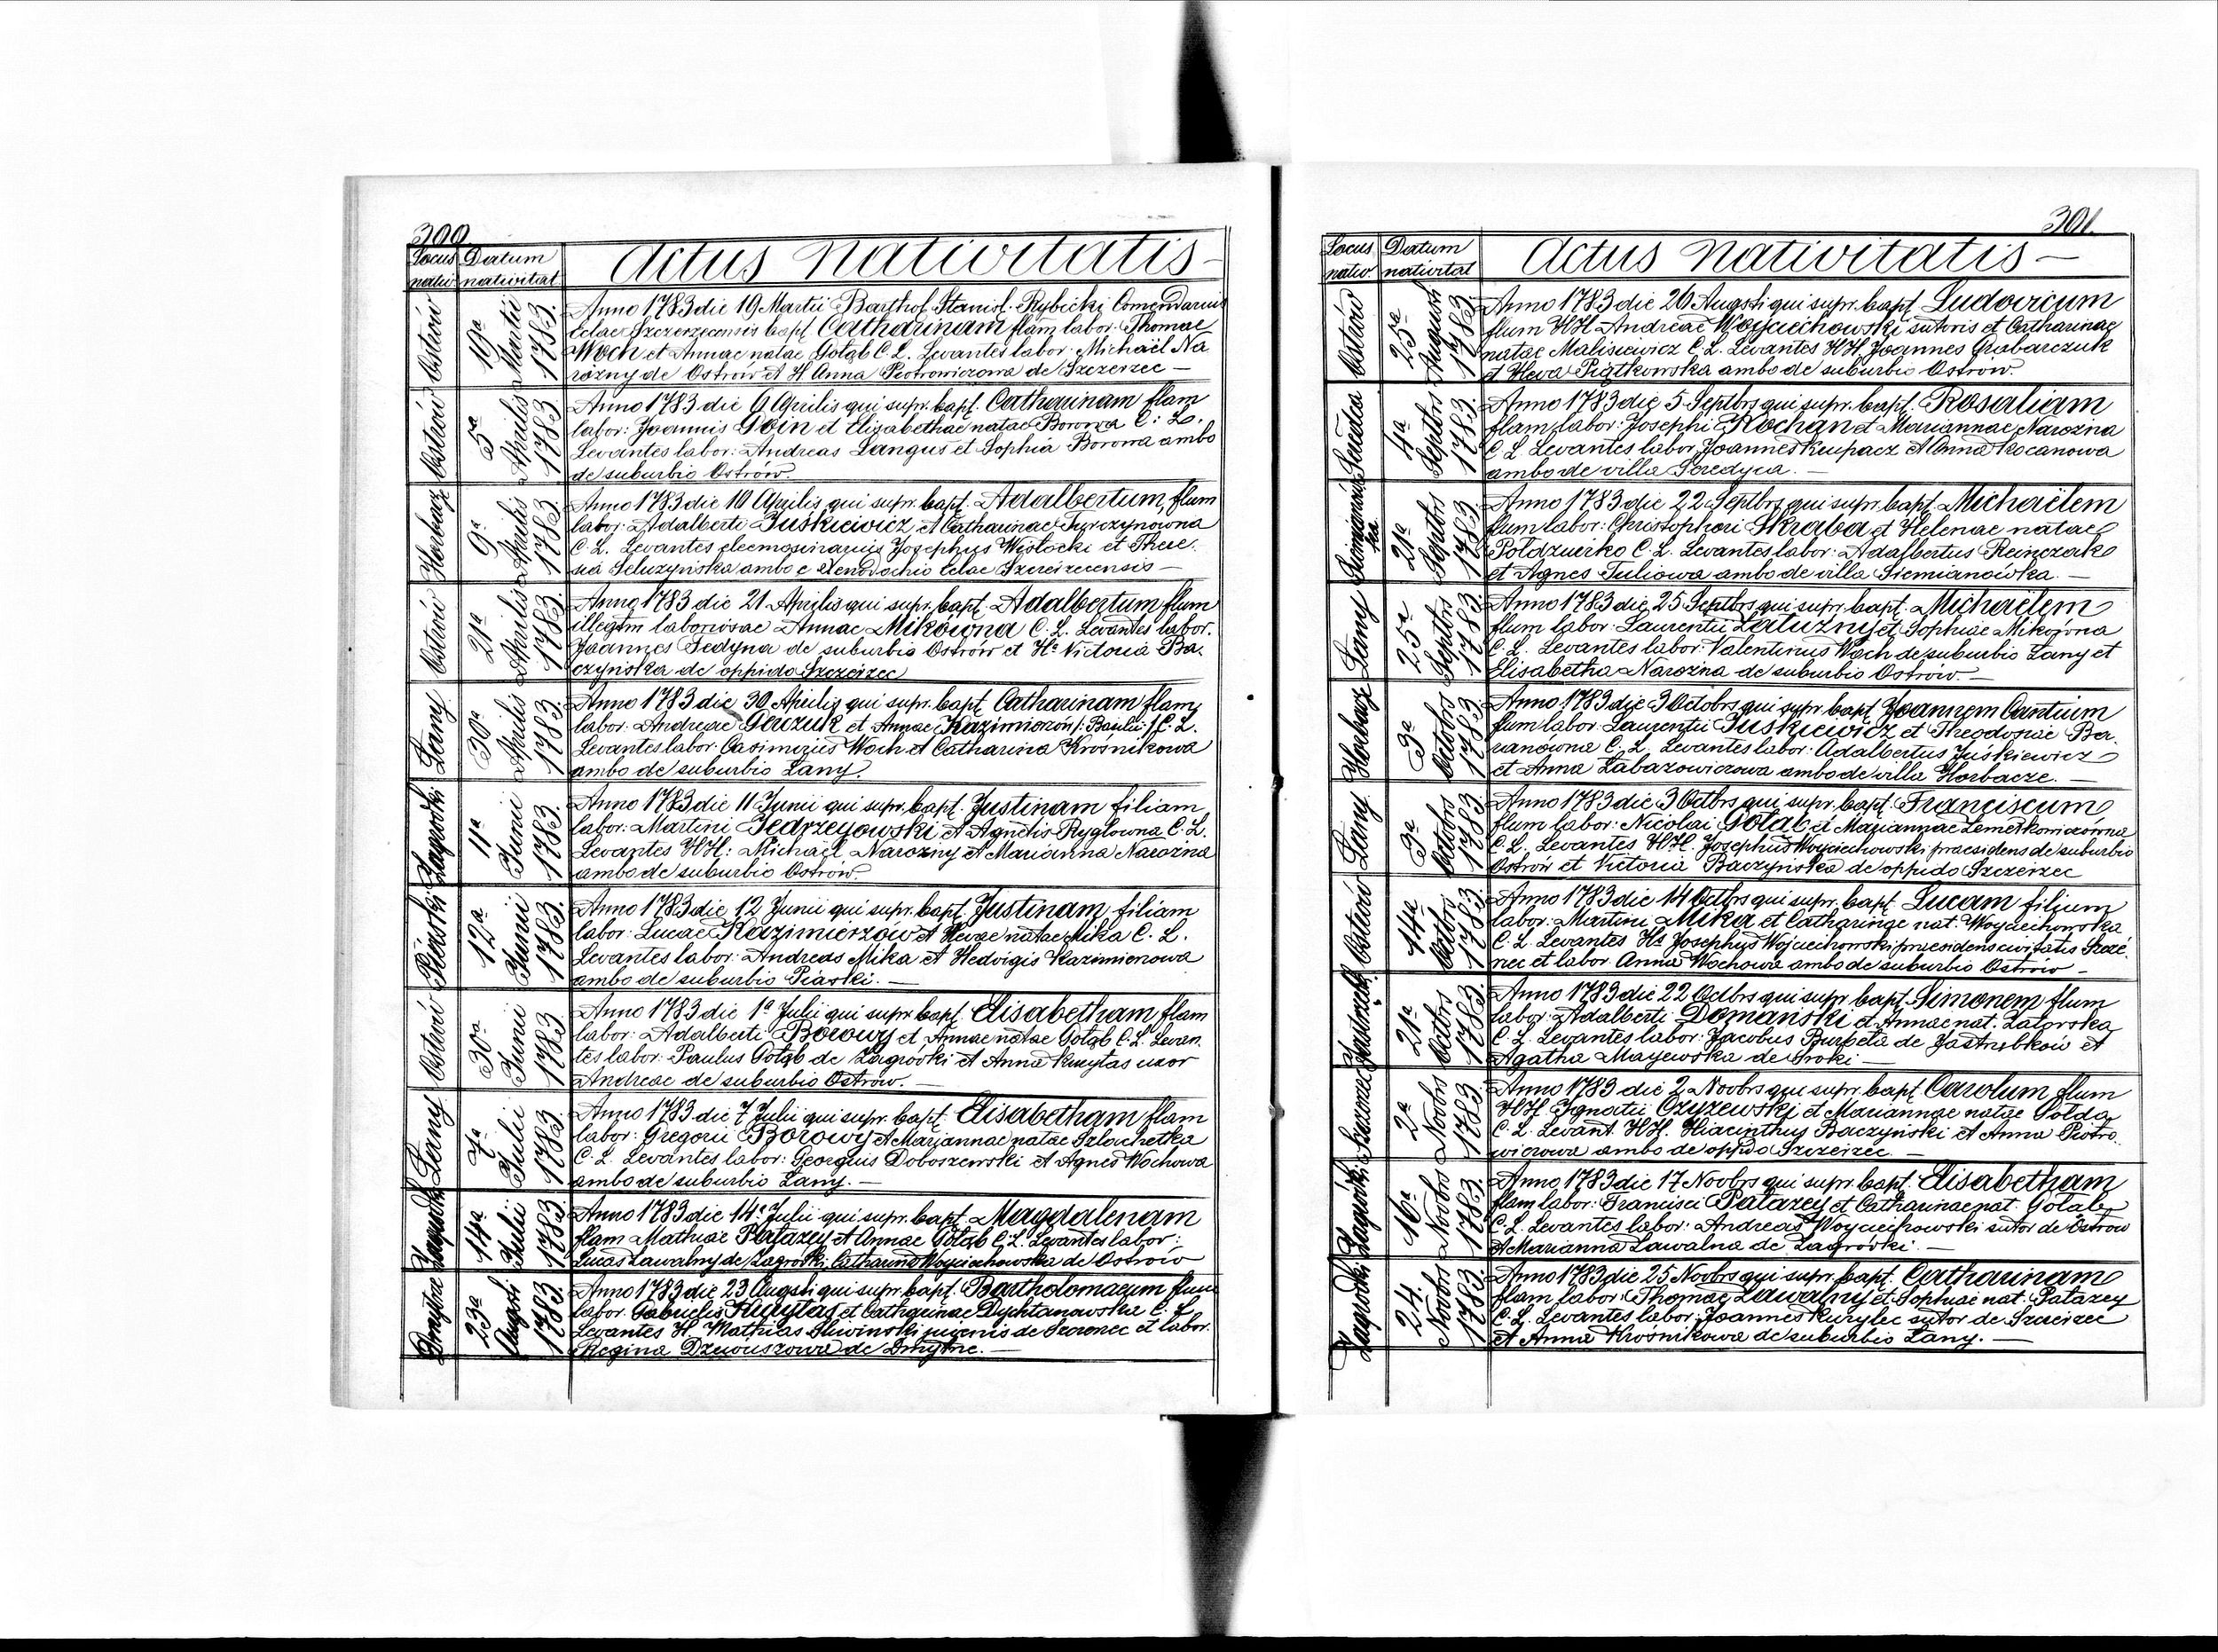 300
Locus nativ
Datum nativitat
Actus nativitatis –
Ostrów
19ª Martii 1783.
Anno 1783 die 19 Martii Barthol. Stanisl. Rybicki Comendarius
Eclae Szczerzecensis bapt. Catharinam flam labor: Thomae
Woch et Annae natae Gołąb C. L. Levantes labor: Michaël Na
rożny de Ostrów et H Anna Piotrowiczowa de Szczerzec —
Ostrów
5ª Aprilis 1783.
Anno 1783 die 6 Aprilis qui supr. bapt. Catharinam flam
labor: Joannis Goin et Elisabethae natae Borowa C: L.
Levantes labor: Andreas Langus et Sophia Borowa ambo
de suburbio Ostrów.
Horbacz
9ª Aprilis 1783.
Anno 1783 die 10 Aprilis qui supr. bapt. Adalbertum flum
labor: Adalberti Juśkiewicz et Catharinae Turczynowna
C. L. Levantes eleemosinarius Josephus Wisłocki et There-
sia Seluzyńska ambo e Xenodochio Eclae Szczerzecensis —
Ostrów
21ª Aprilis 1783.
Anno 1783 die 21 Aprilis qui supr. bapt. Adalbertum flum
illegtm laboriosae Annae Mikówna C. L. Levantes labor.
Joannes Fedyna de suburbio Ostrów et Hª Victoria Ba-
czyńska de oppido Szczerzec
Łany
30ª Aprilis 1783.
Anno 1783 die 30 Aprilis qui supr. bapt. Catharinam flam
labor: Andreae Gerczuk et Annae Kazimierzów /: Baulii :/ C. L.
Levantes labor: Casimirus Woch et Catharina Krośnikowa
ambo de suburbio Łany.
Zagrodki
11ª Junii 1783
Anno 1783 die 11 Junii qui supr. bapt. Justinam filiam
labor: Martini Jedrzeyowski et Agnetis Ryglowna C. L.
Levantes HH: Michaël Narożny et Marianna Narożna
ambo de suburbio Ostrów.
Piaski
12ª Junii 1783
Anno 1783 die 12 Junii qui supr. bapt. Justinam filiam
labor: Lucae Kazimierzów et Hevae natae Mika C. L.
Levantes labor: Andreas Mika et Hedvigis Kazimierowa
ambo de suburbio Piaski. —
Ostrów
30ª Junii 1783
Anno 1783 die 1ª Julii qui supr. bapt. Elisabetham flam
labor: Adalberti Borowy et Annae natae Gołąb C. L. Levan-
tes labor: Paulus Gołąb de Zagródki et Anna Kurytas uxor
Andreae de suburbio Ostrów. —
Łany
7ª Julii 1783
Anno 1783 die 7 Julii qui supr. bapt. Elisabetham flam
labor: Gregorii Borowy et Mariannae natae Szlachetka
C. L. Levantes labor: Georgius Doboszewski et Agnes Wochowa
ambo de suburbio Łany. —
Zagrodki
14ª Julii 1783
Anno 1783 die 14ª Julii qui supr. bapt. Magdalenam
flam Mathiae Patazey et Annae Gołąb C. L. Levantes labor:
Lucas Zawalny de Zagrodki, Catharina Woyciechowska de Ostrów
Dmytre
23ª Augsti 1783
Anno 1783 die 23 Augsti qui supr. bapt. Bartholomaeum flum
labor: Gabrielis Hurytas et Catharinae Dychtanowska C. L.
Levantes H. Mathias Sliwinski juvenis de Szczerzec et labor.
Regina Dziuiszowa de Dmytre. —
301.
Locus nativ
Datum nativitat
Actus nativitatis —
Ostrów
25ª Augusti 1783.
Anno 1783 die 26 Augsti qui supr. bapt. Ludovicum
flum HH. Andreae Woyciechowski sutoris et Catharinae
natae Malisiewicz C. L. Levantes HH. Joannes Grabarczuk
et Heva Piątkowska ambo de suburbio Ostrów.
4ª Septbrs 1783.
Anno 1783 die 5 Septbrs qui supr. bapt. Rosaliam
flam labor: Josephi Kochan et Mariannae Narożna
C. L. Levantes labor. Joannes Krupacz et Anna Kocanowa
ambo de villa Seredyca. —
Siemianówka
21ª Septbrs 1783
Anno 1783 die 22 Septbrs qui supr. bapt. Michaëlem
flum labor: Christophori Skraba et Helenae natae
Połdzuirko C. L. Levantes labor: Adalbertus Reinczak
et Agnes Tuliowa ambo de villa Siemianówka. —
Łany
25ª Septbrs 1783.
Anno 1783 die 25 Septbrs qui supr. bapt. Michaëlem
flum labor: Laurentii Załużny et Sophiae Mikówna
C. L. Levantes labor: Valentinus Woch de suburbio Łany et
Elisabetha Narożna de suburbio Ostrów. —
Horbacz
3ª Octobrs 1783.
Anno 1783 die 3 Octobrs qui supr. bapt. Joannem Cantium
flum labor: Laurentii Juśkiewicz et Theodosiae Ba-
ranowna C. L. Levantes labor: Adalbertus Juśkiewicz
et Anna Łabazowiczowa ambo de villa Horbacze. —
Łany
3ª Octobrs 1783.
Anno 1783 die 3 Octbrs qui supr. bapt. Franciscum
flum labor: Nicolai Gołąb et Mariannae Lemeszkowiczówna
C. L. Levantes HH. Josephus Woyciechowski praesidens de suburbio
Ostrów et Victoria Baczyńska de oppido Szczerzec
Ostrów
14ª Octbrs 1783
Anno 1783 die 14 Octbrs qui supr. bapt. Lucam filium
labor: Martini Mika et Catharinae nat. Woyciechowska
C. L. Levantes Hs Josephus Woyciechowski praesidens civitatis Szcze-
rzec et labor. Anna Wochowa ambo de suburbio Ostrów —
21ª Octbrs 1783.
Anno 1783 die 22 Octbrs qui supr. bapt. Simonem flum
labor: Adalberti Domański et Annae nat. Zatorska
C. L. Levantes labor: Jacobus Burbela de Jastrzbków et
Agatha Mayewska de Sroki —
Szczerzec
2ª Novbrs 1783.
Anno 1783 die 2 Novbrs qui supr. bapt. Carolum flum
HH. Ignatii Czyżewski et Mariannae natae Gołda
C. L. Levant. HH. Hiacinthus Baczyński et Anna Piotro-
wiczowa ambo de oppido Szczerzec. —
Zagródki
16ª Novbrs 1783.
Anno 1783 die 17 Novbrs qui supr. bapt. Elisabetham
flam labor: Francisci Patazey et Catharinae nat. Gołąb
C. L. Levantes labor: Andreas Woyciechowski sutor de Ostrów
et Marianna Zawalna de Zagródki. —
Zagrodki
24. Novbrs 1783.
Anno 1783 die 25 Novbrs qui supr. bapt. Catharinam
flam labor: Thomae Zawalny et Sophiae nat. Patazey
C. L. Levantes labor. Joannes Kurylec sutor de Szczerzec
et Anna Krośnikowa de suburbio Łany. —